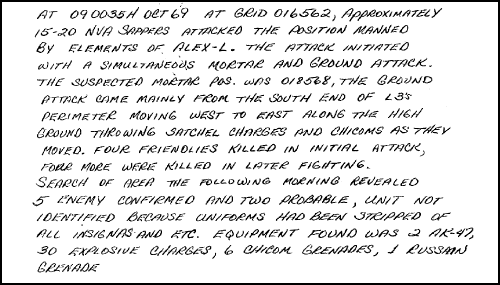 AT 090035H OCT 69 AT GRID 016562, APPROXIMATELY
15-20 NVA SAPPERS ATTACKED THE POSITION MANNED
BY ELEMENTS OF ALEX-L. THE ATTACK INITIATED
WITH A SIMULTANEOUS MORTAR AND GROUND ATTACK.
THE SUSPECTED MORTAR POS. WAS 018568, THE GROUND
ATTACK CAME MAINLY FROM THE SOUTH END OF L3's
PERIMETER MOVING WEST TO EAST ALONG THE HIGH
GROUND THROWING SATCHEL CHARGES AND CHICOMS AS THEY
MOVED. FOUR FRIENDLIES KILLED IN INITIAL ATTACK,
FOUR MORE WERE KILLED IN LATER FIGHTING.
SEARCH OF AREA THE FOLLOWING MORNING REVEALED
5 ENEMY CONFIRMED AND TWO PROBABLE, UNIT NOT
IDENTIFIED BECAUSE UNIFORMS HAD BEEN STRIPPED OF
ALL INSIGNAS AND ETC. EQUIPMENT FOUND WAS 2 AK-47,
30 EXPLOSIVE CHARGES, 6 CHICOM GRENADES, 1 RUSSAIN
GRENADE